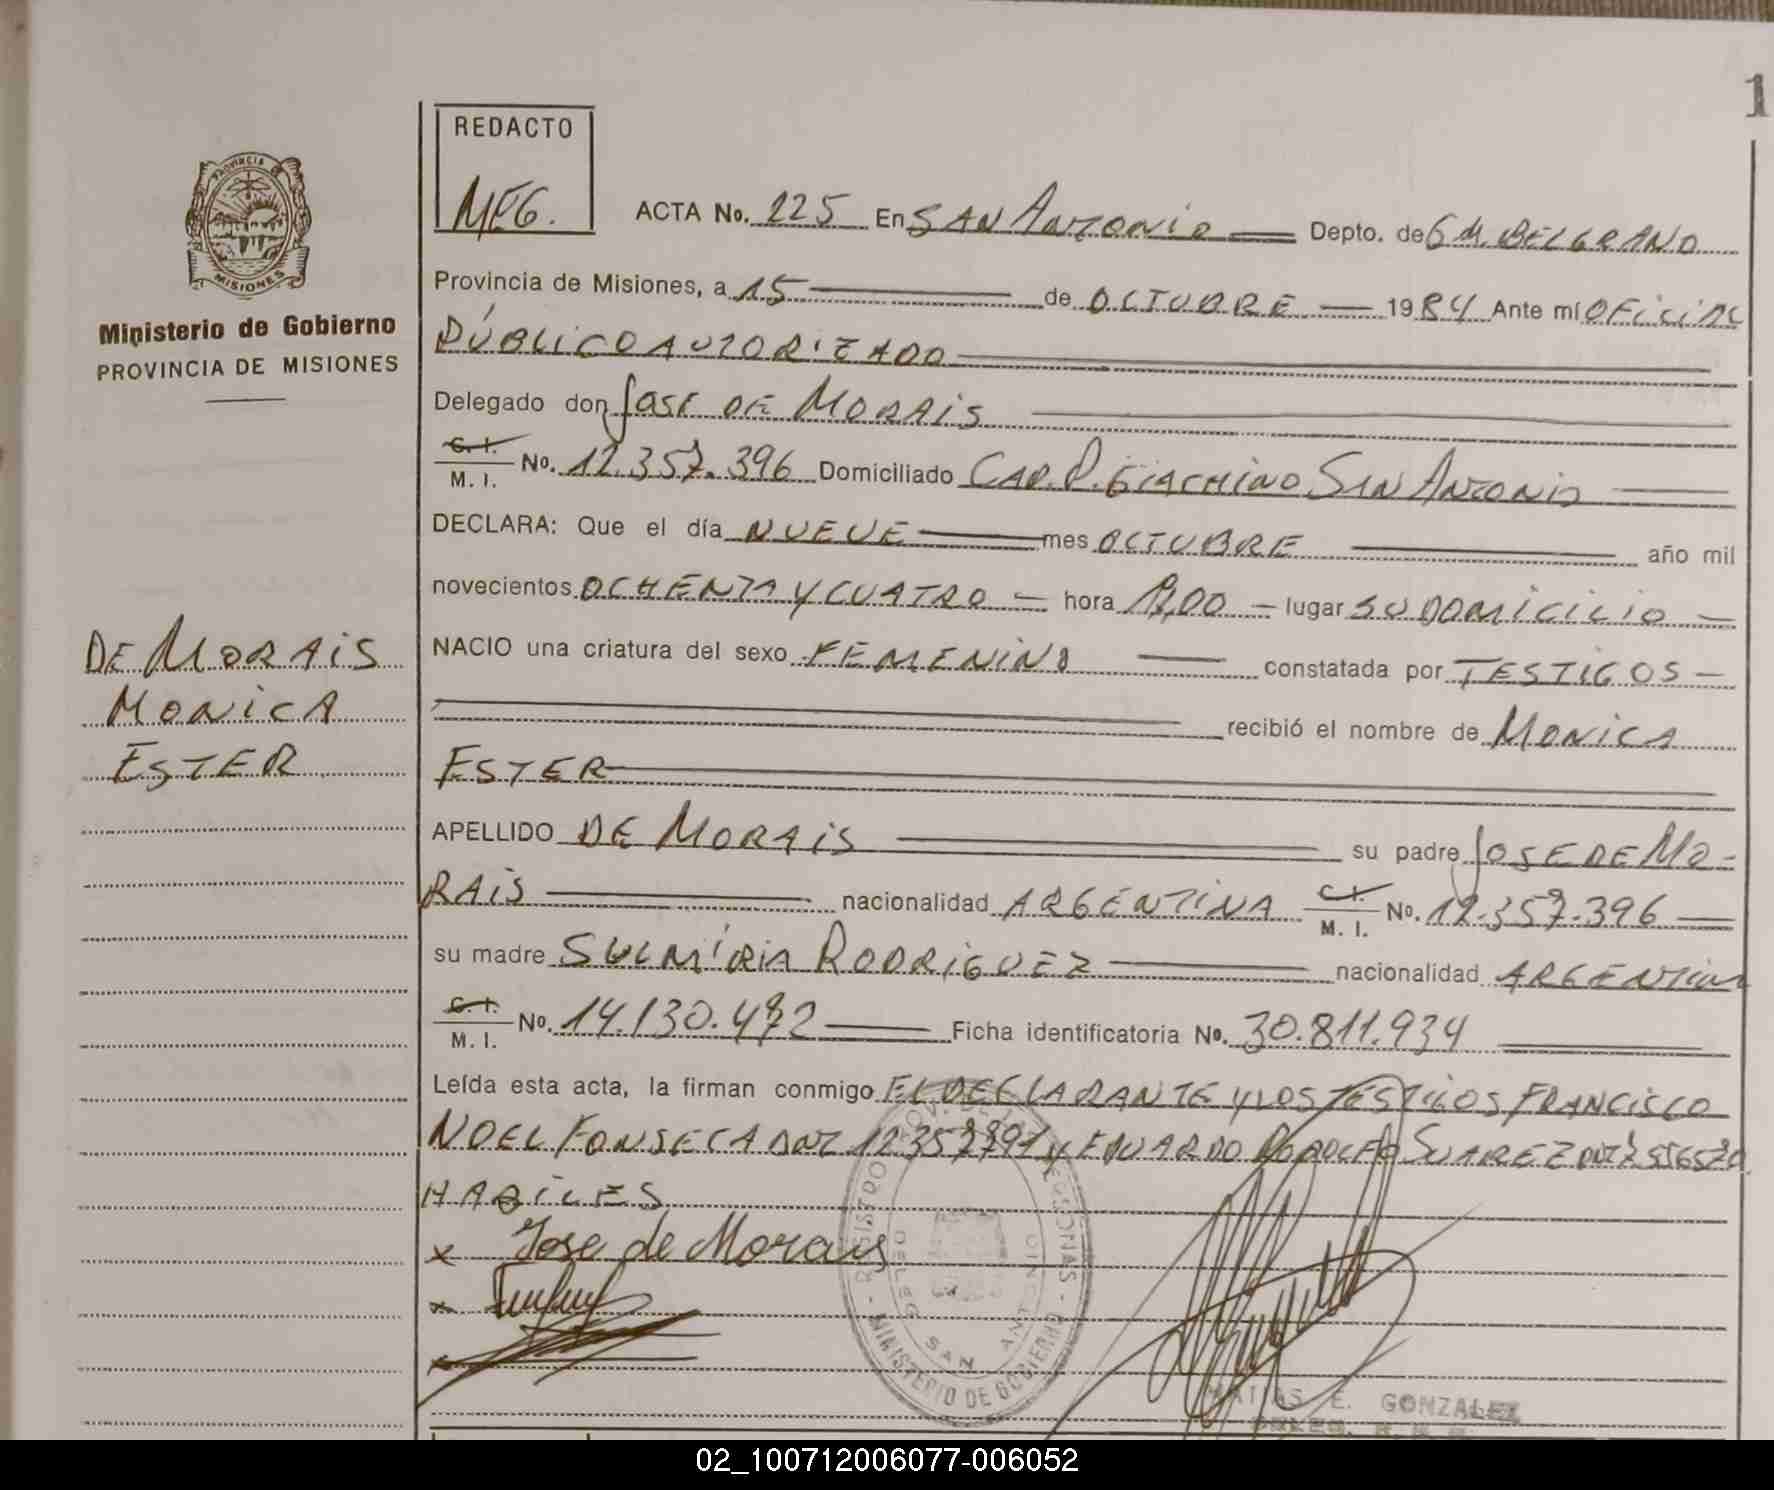 1
REDACTO
MEG.
PROVINCIA
MISIONES
Ministerio de Gobierno
PROVINCIA DE MISIONES
ACTA No. 225 En SAN ANTONIO Depto. de G M. BELGRANO
Provincia de Misiones, a 15 de OCTUBRE 1984 Ante mí OFICIAL
PÚBLICO AUTORIZADO
Delegado don JOSE DE MORAIS
C. I.
M. I. No. 12.357.396 Domiciliado CAP. P. GIACHINO SAN ANTONIO
DECLARA: Que el día NUEVE mes OCTUBRE año mil
novecientos OCHENTA Y CUATRO — hora — lugar SU DOMICILIO —
NACIO una criatura del sexo FEMENINO constatada por TESTIGOS —
recibió el nombre de MONICA
ESTER
APELLIDO DE MORAIS su padre JOSE DE MO-
RAIS nacionalidad ARGENTINA C. I. M. I. No. 12.357.396
su madre SULMIRIA RODRIGUEZ nacionalidad ARGENTINA
C. I.
M. I. No. 14.130.472 Ficha identificatoria No. 30.811.934
Leída esta acta, la firman conmigo EL DECLARANTE Y LOS TESTIGOS FRANCISCO
NOEL FONSECA DNI Y EDUARDO RODOLFO SUAREZ DNI
HABILES
x Jose de Morais
x
x
DE MORAIS
MONICA
ESTER
REGISTRO PROV. DE LAS PERSONAS - MINISTERIO DE GOBIERNO -
DELEG. SAN ANTONIO
MATIAS E. GONZALEZ
02_100712006077-006052